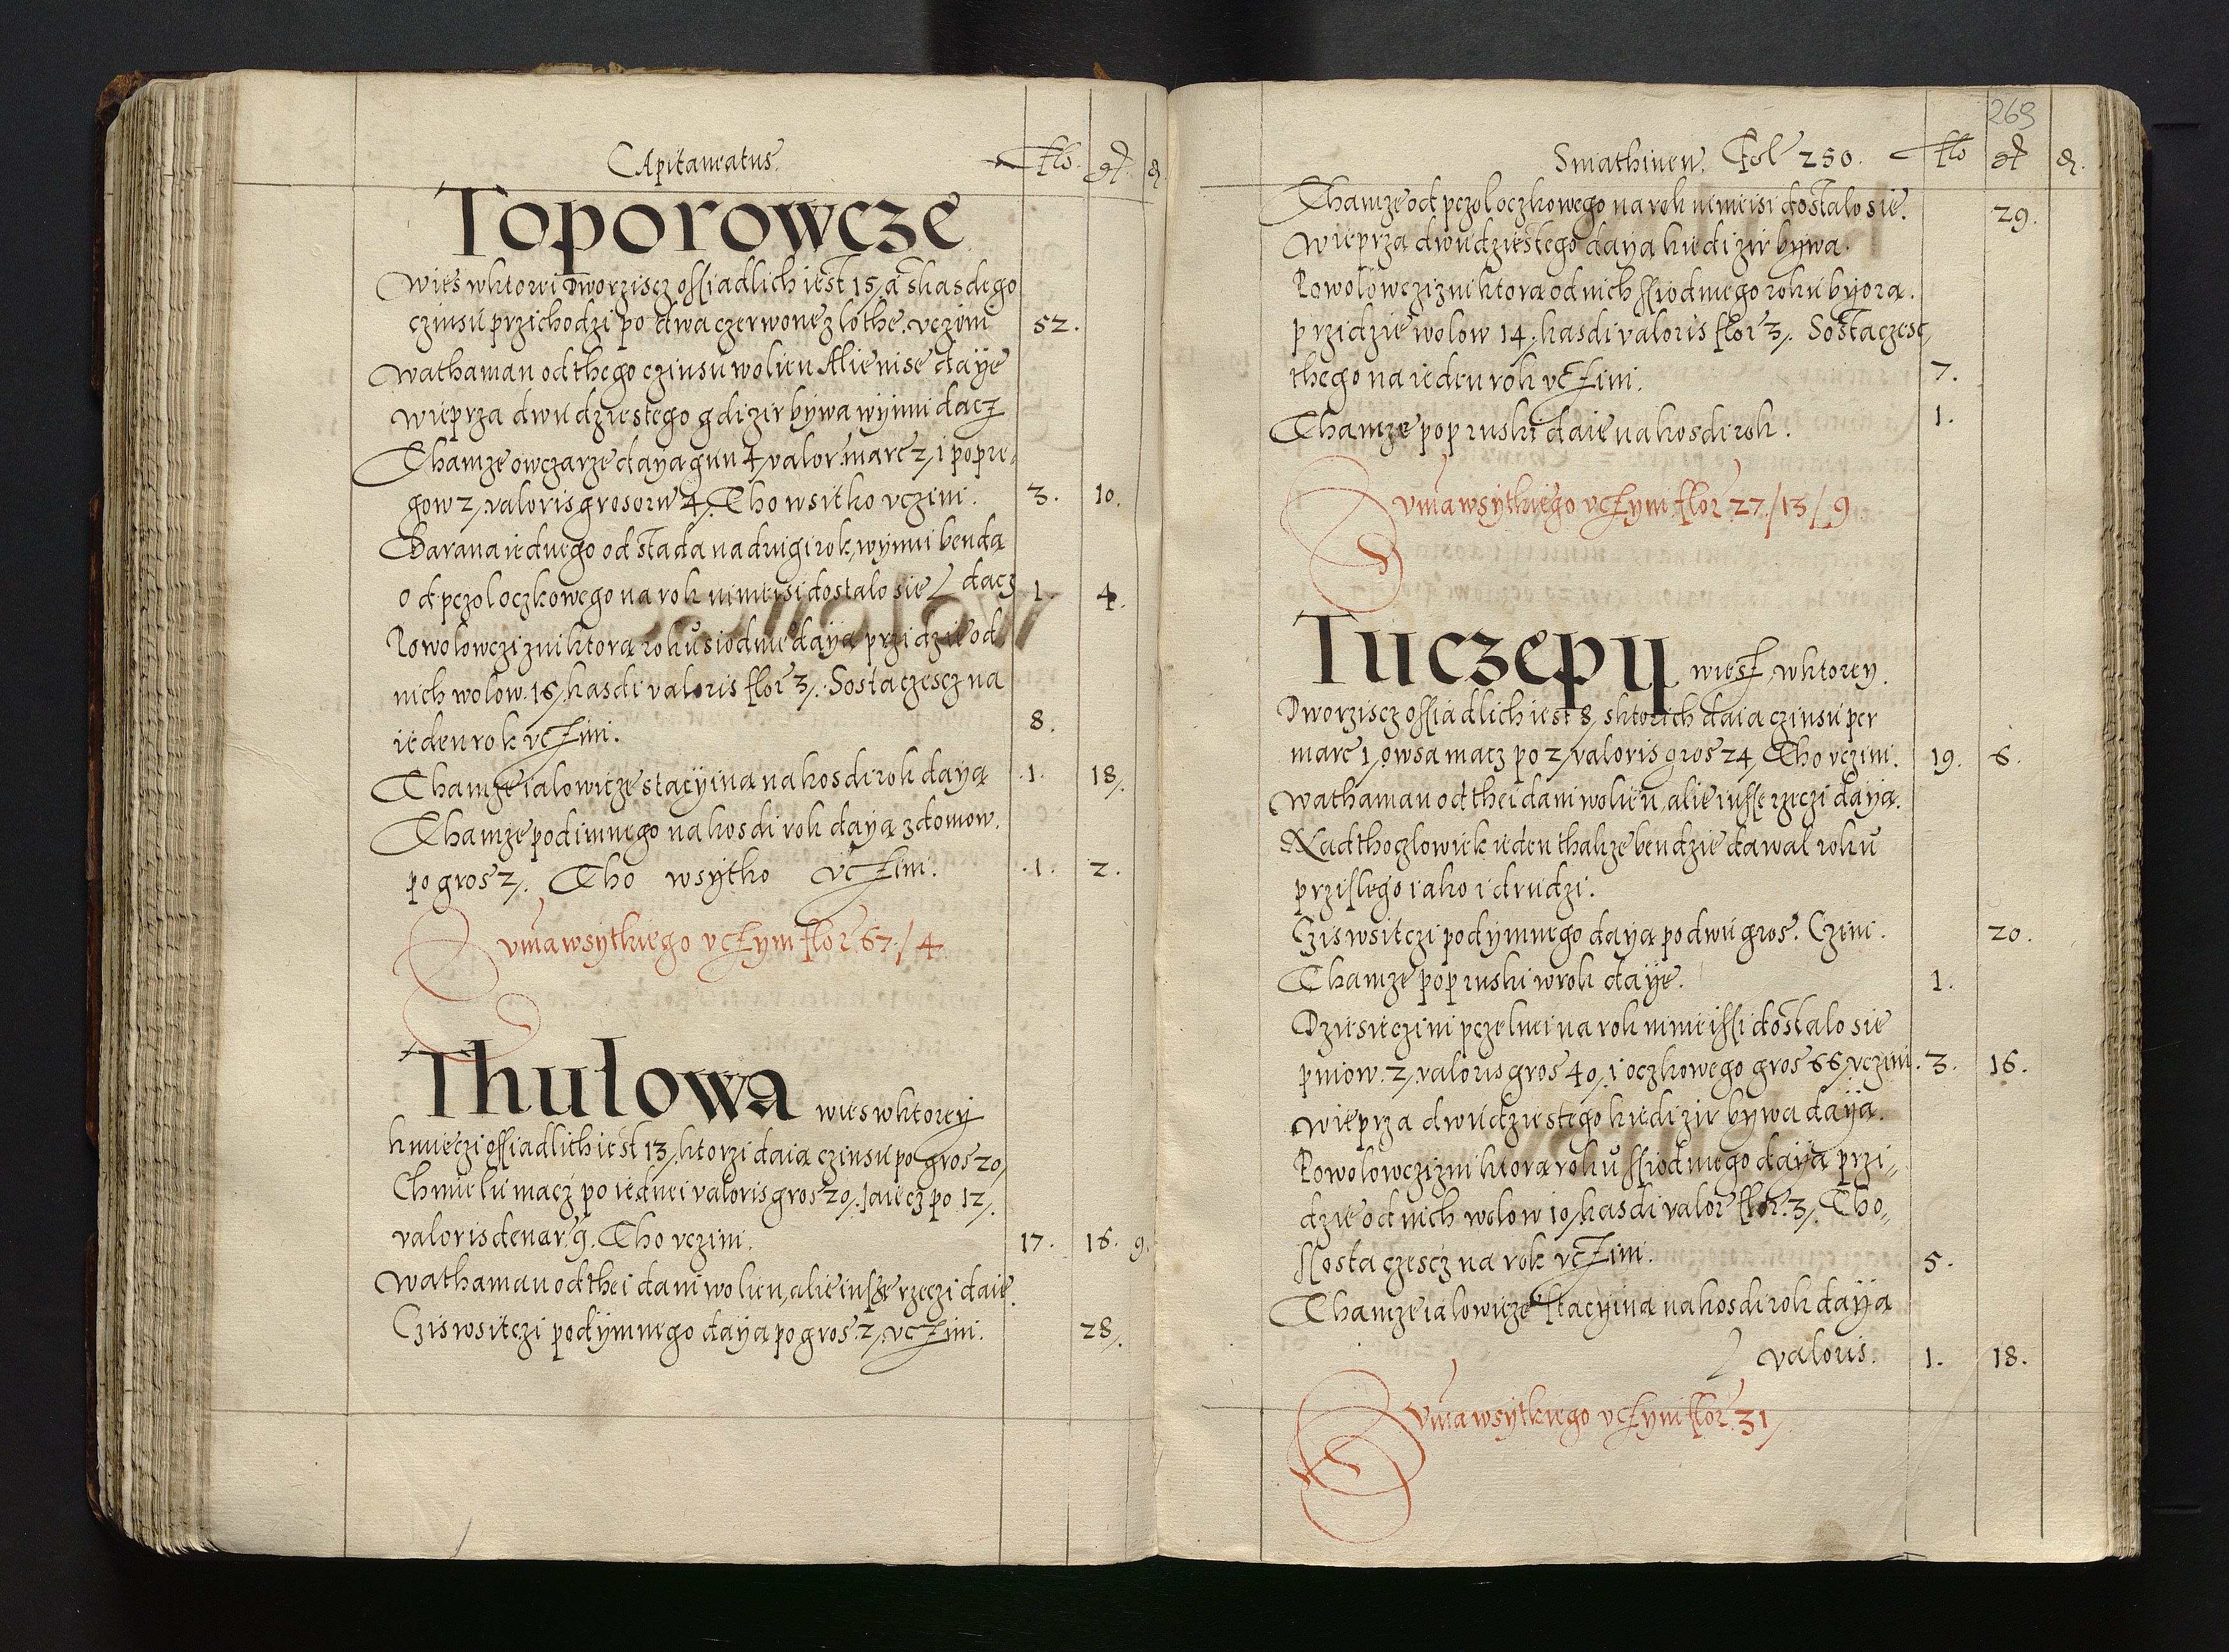 Capitaneatus. Flo. gr. d.
Toporowcze
Wies wktorei Dworziscz ossiadlich iest 15, a skasdego
czinsu przichodzi po dwa czerwone zlothe. vczini 52.
Wathaman od thego czinsu wolien Alie nise daÿe
wieprza dwudziestego gdi zir bÿwa wÿinni dacz
Thamze owczarze daya gun 4, valor. marc 2, i popre,
gow 2, valoris grosorum 4, Tho wsitko vczini. 3. 10.
Barana iednego od stada na drugi rok, wÿnni benda
dacz
od pczol oczkowego na rok ninieisi dostalo sie 1. 4.
Powolowczizni ktora roku siodme daÿa przidzie od
nich wolow. 16, kasdi valoris flor 3, Sosta czescz na
ieden rok vczini. 8.
Thamze ialowicze stacÿina na kosdi rok daÿa .1. 18,
Thamze podimnego na kosdi rok daÿa z domow.
po gros 2,. Tho wsytko vczini. .1. 2.
Suma wsytkiego vczyni flor. 67./4
Thulowa wies wktoreÿ
kmieczi ossiadlich iest 13, ktorzi daia czinsu po gros 20,
Chmielu macz po iednei valoris gros 20,. Jaiecz po 12,
valoris denar. 9. Tho vczini. 17. 16. 9.
Wathaman od thei dani wolien, alie insse rzeczi daie.
Czis wsitczi podÿmnego daÿa po gros. 2, vczini. 28,.
269
Sniathinen. Fol 250. Flo gr d.
Thamze od pczol oczkowego na rok ninieisi dostalo sie. 29.
Wieprza dwudziestego daÿa kiedi zir bÿwa.
Powolowczizni ktora od nich ssiodmego roku byora.
przidzie wolow 14, kasdi valoris flor 3,. Sosta czesc,
thego na ieden rok vczini. 7.
Thamze pop ruski daie na kosdi rok. 1.
Suma wsÿtkiego vczyni flor 27./13/9
Tuczepÿ wiesz, wktorey.
Dworziscz ossiadlich iest 8, sktorich daia czinsu per
marc 1, owsa macz po 2, valoris gros 24, Tho vczini. 19. 6.
Wathaman od thei dani wolien, alie insse rzeczi daÿa.
Nadtho czlowiek ieden thakze bendzie dawal roku
przislego iako i drudzi.
Czis wsitczi podÿmnego daÿa po dwu gros. Czini. 20.
Thamze pop ruski wrok daÿe. 1.
Dziesieczini pczelnei na rok ninieissi dostalo sie
pniow. 2, valoris gros 40, i oczkowego gros 66, vczini. 3. 16.
Wieprza dwudziestego kiedi zir bÿwa daÿa.
Powolowczizni ktora roku ssiodmego daÿa przi,,
dzie od nich wolow 10, kasdi valor flor. 3,. Tho,,
ssosta czescz na rok vczini. 5.
Thamze ialowicze stacÿina na kosdi rok daÿa
valoris. 1. 18.
Suma wsytkiego vczyni flor. 31,